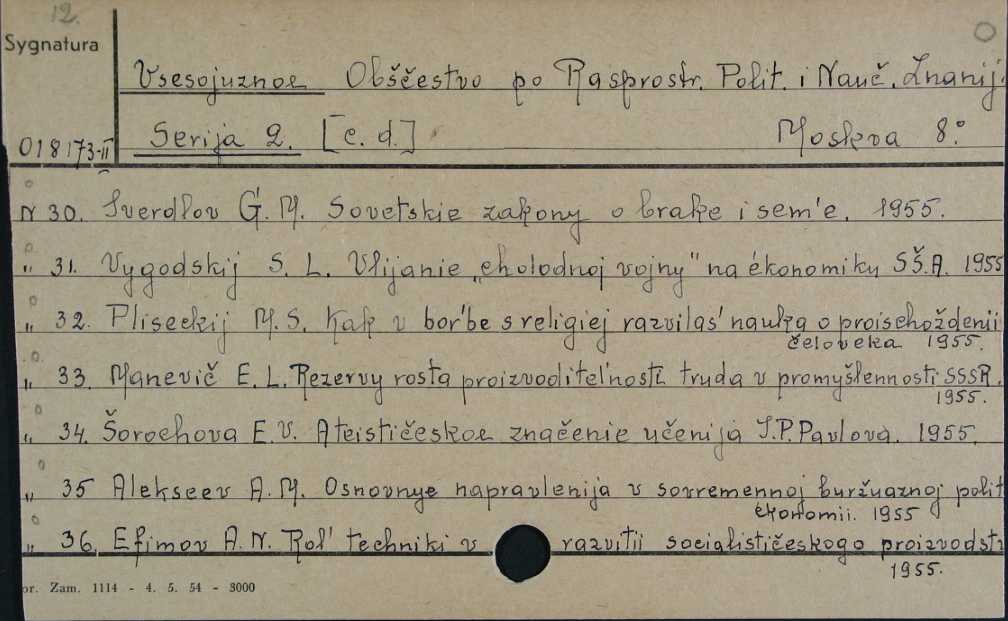 12.
Sygnatura
Vsesojuznoe Obščestvo po Rasprostr. Polit. i Nauč. Znanij.
018173-II Serija 2. [c. d.] Moskva 8°
N 30. Sverdlov G. M. Sovetskie zakony o brake i sem'e. 1955.
" 31. Vygodskij S. L. Vlijanie „cholodnoj vojny" na ékonomiku SŠA. 1955
" 32. Pliseckij M. S. Kak v bor'be s religiej razvilas' nauka o proischoždenii
čeloveka 1955.
" 33. Manevič E. L. Rezervy rosta proizvoditel'nosti truda v promyšlennosti SSSR.
1955.
" 34. Šorochova E. V. Ateističeskoe značenie učenija I. P. Pavlova. 1955.
" 35 Alekseev A. M. Osnovnye napravlenija v sovremennoj buržuaznoj polit
ekonomii. 1955
" 36. Efimov A. N. Rol' techniki v razvitii socialističeskogo proizvodst
1955.
or. Zam. 1114 - 4. 5. 54 - 3000